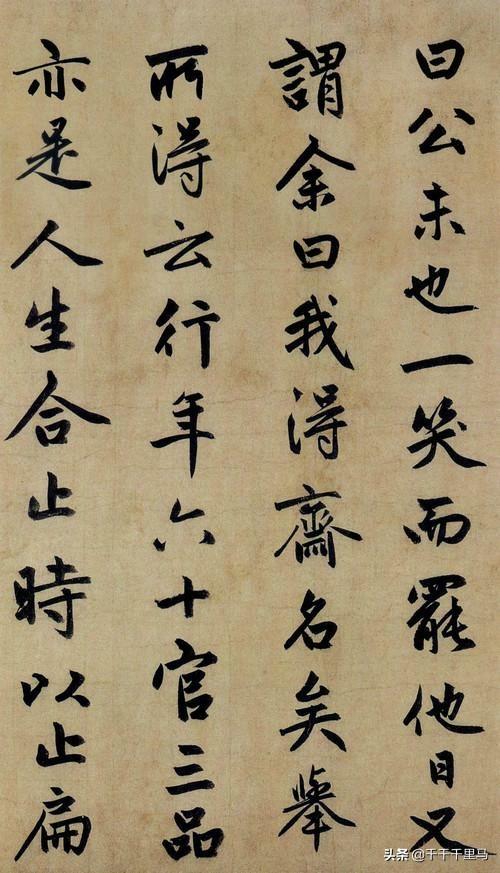 曰公未也一笑而罷他日又
謂余曰我得齋名矣舉
所得云行年六十官三品
亦是人生合止時以止扁
头条@千千千里马